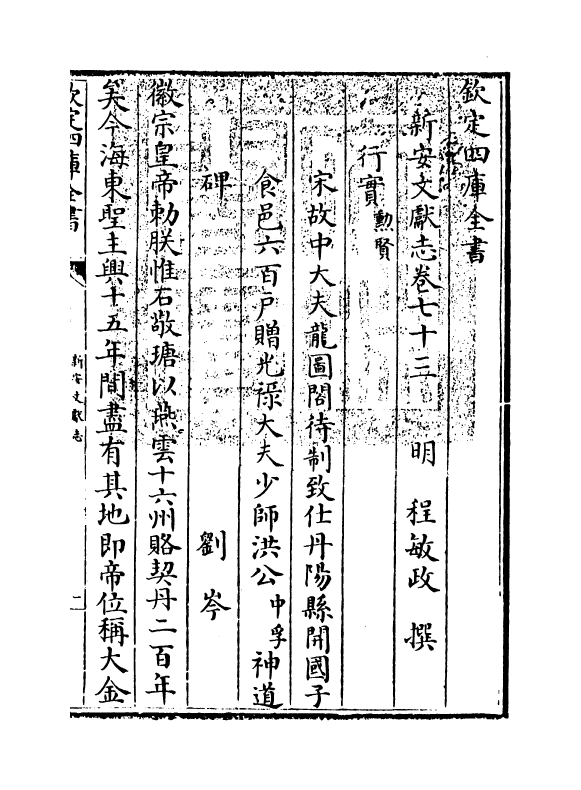 欽定四庫全書
新安文獻志卷七十三 明 程敏政 撰
行實 勲賢
宋故中大夫龍圖閣待制致仕丹陽縣開國子
食邑六百户贈光祿大夫少師洪公 中孚 神道
碑 劉岑
徽宗皇帝勅朕惟石敬瑭以燕雲十六州賂契丹二百年
矣今海東聖主興十五年間盡有其地即帝位稱大金
欽定四庫全書
新安文獻志